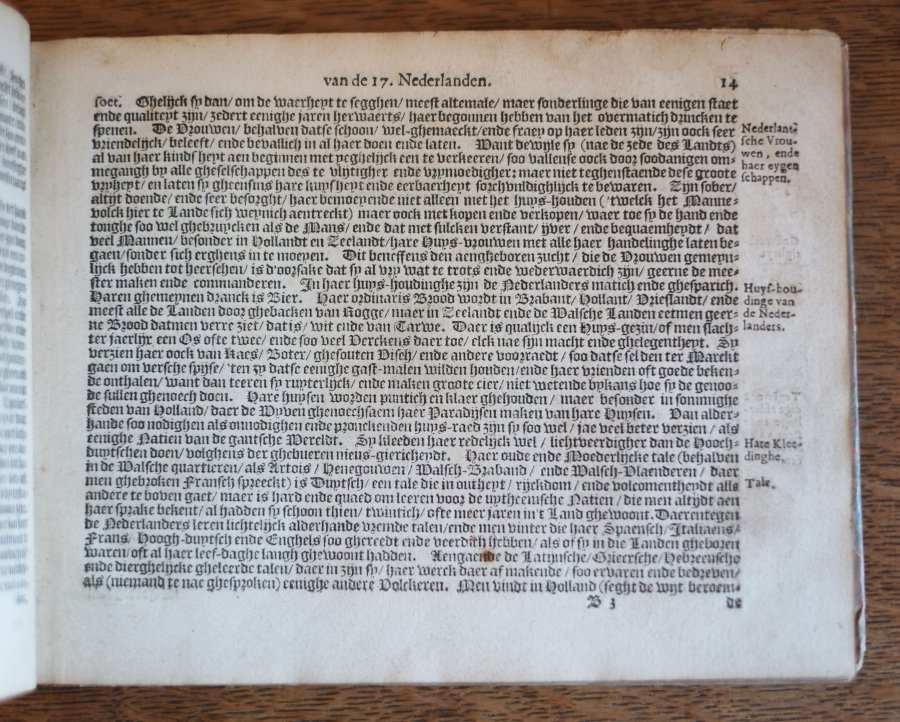 van de 17. Nederlanden. 14
soet. Ghelijck sy dan/ om de waerheyt te segghen/ meest altemale/ maer sonderlinge die van eenigen staet
ende qualiteyt zijn/ zedert eenighe jaren herwaerts/ haer begonnen hebben van het overmatich drincken te
spenen. De Vrouwen/ behalven datse schoon/ wel-ghemaeckt/ ende fraey op haer leden zijn/ zijn oock seer
vriendelijck/ beleeft/ ende bevallich in al haer doen ende laten. Want dewijle sy (nae de zede des Landts)
al van haer kindsheyt aen beginnen met yeghelijck een te verkeeren/ soo vallense oock door soodanigen om-
megangh by alle gheselschappen des te vlijtigher ende vrymoediger: maer niet teghenstaende dese groote
vryheyt/ en laten sy gheensins hare kuysheyt ende eerbaerheyt sorchvuldighlijck te bewaren. Zijn sober/
altijt doende/ ende seer besorght/ haer bemoeyende niet alleen met het huys-houden ('twelck het Manne-
volck hier te Lande sich weynich aentreckt) maer oock met kopen ende verkopen/ waer toe sy de hand ende
tonghe soo wel ghebruycken als de Mans/ ende dat met sulcken verstant/ yver/ ende bequaemheydt/ dat
veel Mannen/ besonder in Hollandt en Zeelandt/ hare Huys-vrouwen met alle haer handelinghe laten be-
gaen/ sonder sich erghens in te moeyen. Dit beneffens den aengheboren zucht/ die de Vrouwen gemeyn-
lijck hebben tot heerschen/ is d'oorsake dat sy al vry wat te trots ende wederwaerdich zijn/ geerne de mee-
ster maken ende commanderen. In haer huys-houdinghe zijn de Nederlanders matich ende ghesparich.
Haren ghemeynen dranck is Bier. Haer ordinaris Brood wordt in Brabant/ Hollant/ Vrieslandt/ ende
meest alle de Landen door ghebacken van Rogge/ maer in Zeelandt ende de Walsche Landen eetmen geer-
ne Brood datmen verre ziet/ dat is/ wit ende van Tarwe. Daer is qualijck een Huys-gezin/ of men slach-
ter jaerlijx een Os ofte twee/ ende soo veel Verckens daer toe/ elck nae zijn macht ende ghelegentheyt. Sy
verzien haer oock van Kaes/ Boter/ ghesouten Visch/ ende andere voorraedt/ soo datse selden ter Marckt
gaen om versche spijse/ 'ten zy datse eenighe gast-malen wilden houden/ ende haer vrienden oft goede beken-
de onthalen/ want dan teeren sy ruyterlijck/ ende maken groote cier/ niet wetende bykans hoe sy de genoo-
de sullen ghenoech doen. Hare huysen worden puntich en klaer ghehouden/ maer besonder in sommighe
steden van Holland/ daer de Wyven ghenoechsaem haer Paradijsen maken van hare Huysen. Van alder-
hande soo nodighen als onnodighen ende pronckenden huys-raed zijn sy soo wel/ jae veel beter verzien/ als
eenighe Natien van de gantsche Wereldt. Sy kleeden haer redelijck wel/ lichtveerdigher dan de Hooch-
duytschen doen/ volghens der ghebueren nieus-giericheydt. Haer oude ende Moederlijcke tale (behalven
in de Walsche quartieren/ als Artois/ Henegouwen/ Walsch-Braband/ ende Walsch-Vlaenderen/ daer
men ghebroken Fransch spreeckt) is Duytsch/ een tale die in outheyt/ rijckdom/ ende volcomentheydt alle
andere te boven gaet/ maer is hard ende quaed om leeren voor de uytheemsche Natien/ die men altijdt aen
haer sprake bekent/ al hadden sy schoon thien/ twintich/ ofte meer jaren in't Land ghewoont. Daerentegen
de Nederlanders leren lichtelijck alderhande vremde talen/ ende men vinter die haer Spaensch/ Italiaens/
Frans/ Hoogh-duytsch ende Enghels soo ghereedt ende veerdich hebben/ als of sy in die Landen gheboren
waren/ oft al haer leef-daghe langh ghewoont hadden. Aengaende de Latijnsche/ Griecsche/ Hebreeusche
ende dierghelijcke gheleerde talen/ daer in zijn sy/ haer werck daer af makende/ soo ervaren ende bedreven/
als (niemand te nae ghesproken) eenighe andere Volckeren. Men vindt in Holland (seght de wijt beroem-
B 3 de
Nederlant-
sche Vrou-
wen, ende
haer eygen
schappen.
Huys-hou-
dinge van
de Neder-
landers.
Hare Klee-
dinghe.
Tale.